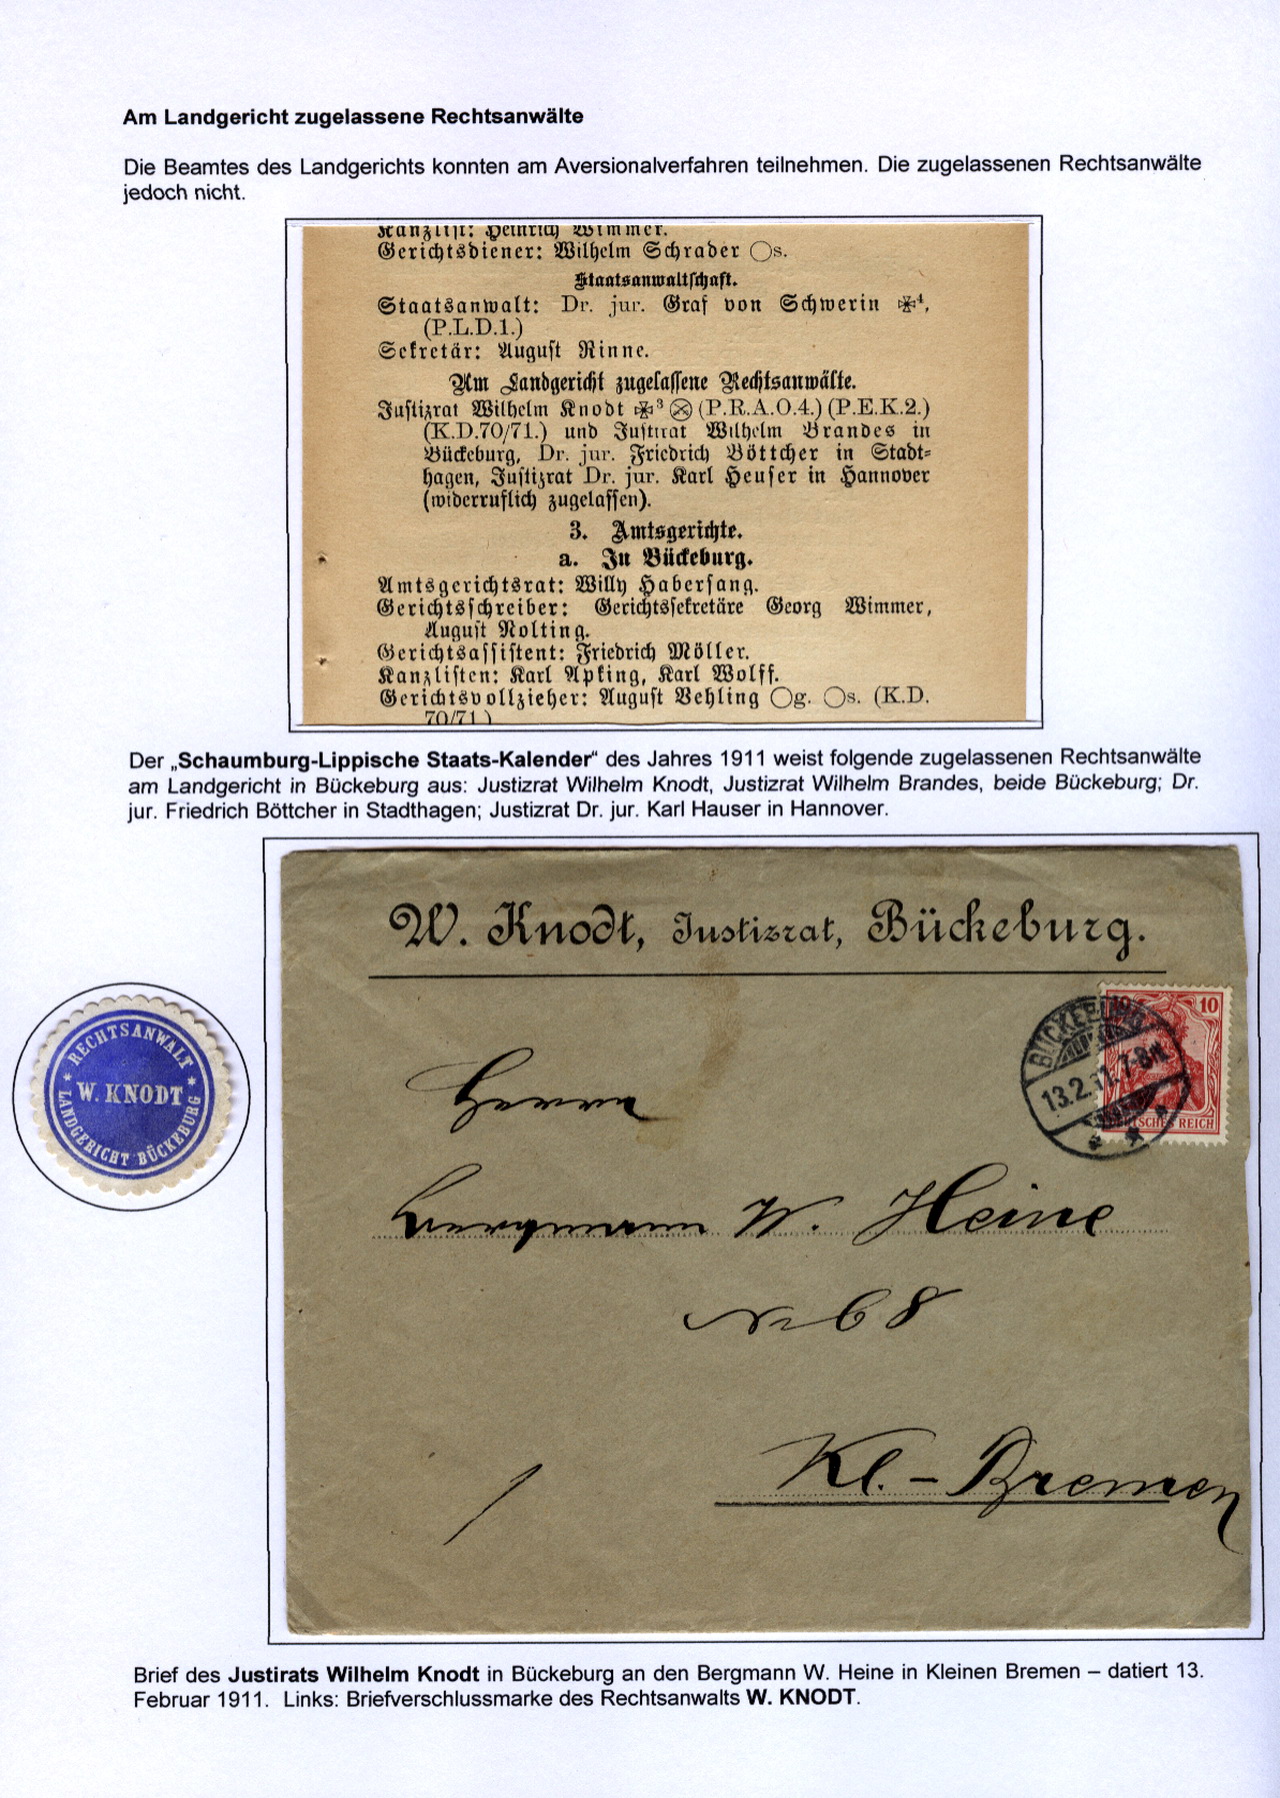 Am Landgericht zugelassene Rechtsanwälte
Die Beamtes des Landgerichts konnten am Aversionalverfahren teilnehmen. Die zugelassenen Rechtsanwälte
jedoch nicht.
Kanzlist: Heinrich Wimmer.
Gerichtsdiener: Wilhelm Schrader ◯s.
Staatsanwaltschaft.
Staatsanwalt: Dr. jur. Graf von Schwerin ✠⁴,
(P.L.D.1.)
Sekretär: August Rinne.
Am Landgericht zugelassene Rechtsanwälte.
Justizrat Wilhelm Knodt ✠³ ⊗ (P.R.A.O.4.) (P.E.K.2.)
(K.D.70/71.) und Justizrat Wilhelm Brandes in
Bückeburg, Dr. jur. Friedrich Böttcher in Stadt-
hagen, Justizrat Dr. jur. Karl Heuser in Hannover
(widerruflich zugelassen).
3. Amtsgerichte.
a. In Bückeburg.
Amtsgerichtsrat: Willy Habersang.
Gerichtsschreiber: Gerichtssekretäre Georg Wimmer,
August Nolting.
Gerichtsassistent: Friedrich Möller.
Kanzlisten: Karl Apking, Karl Wolff.
Gerichtsvollzieher: August Vehling ◯g. ◯s. (K.D.
70/71.)
Der „Schaumburg-Lippische Staats-Kalender“ des Jahres 1911 weist folgende zugelassenen Rechtsanwälte
am Landgericht in Bückeburg aus: Justizrat Wilhelm Knodt, Justizrat Wilhelm Brandes, beide Bückeburg; Dr.
jur. Friedrich Böttcher in Stadthagen; Justizrat Dr. jur. Karl Hauser in Hannover.
W. Knodt, Justizrat, Bückeburg.
10
BÜCKEBURG
13.2.11.7-8N.
DEUTSCHES REICH
RECHTSANWALT
W. KNODT
LANDGERICHT BÜCKEBURG
Herrn
Bergmann W. Heine
No 68
Kl.- Bremen
Brief des Justirats Wilhelm Knodt in Bückeburg an den Bergmann W. Heine in Kleinen Bremen – datiert 13.
Februar 1911. Links: Briefverschlussmarke des Rechtsanwalts W. KNODT.